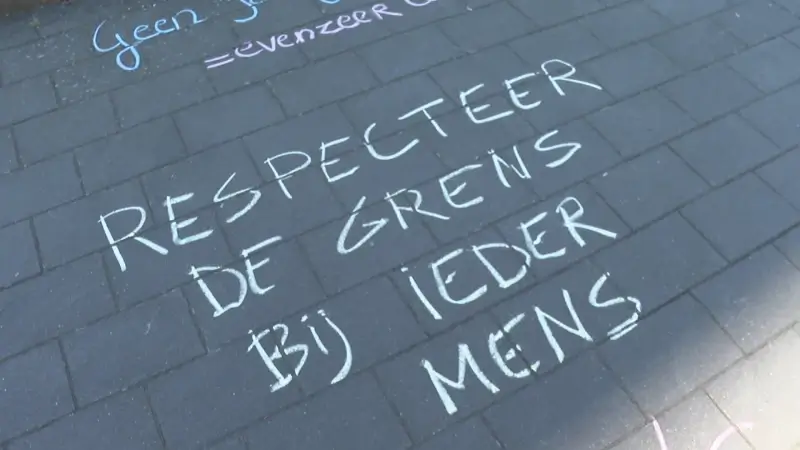 Geen
=evenzeer
RESPECTEER
DE GRENS
BIJ IEDER
MENS